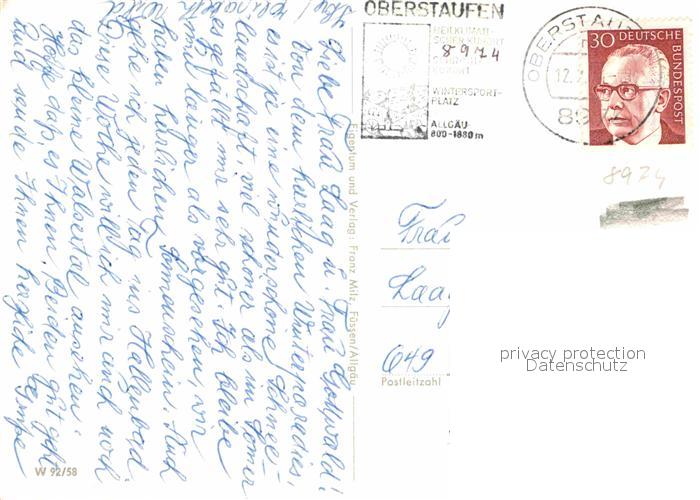 OBERSTAUFEN
HEILKLIMAT-
8974
WINTERSPORT-
PLATZ
ALLGÄU
800-1880 m
OBERSTAUFEN
12.2
89
30 DEUTSCHE
BUNDESPOST
8974
Liebe Frau Laag u. Frau Gottwald!
Von dem herrlichen Winterparadies,
es ist ja eine wunderschöne Schnee-
landschaft, viel schöner als im Sommer
es gefällt mir sehr gut. Ich bleibe
länger als vorgesehen, wir
haben herrlichen Sonnenschein. Und
gehe ich jeden Tag ins Hallenbad
Diese Woche will ich mir auch noch
das kleine Walsertal ansehen.
Hoffe daß es Ihnen Beiden gut geht
und sende Ihnen herzliche Grüße
Ihre
Eigentum und Verlag: Franz Milz, Füssen/Allgäu
Frau
Laag
649
Postleitzahl
W 92/58
privacy protection
Datenschutz